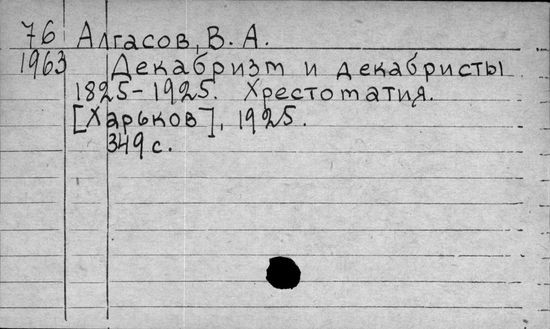 76 Алгасов, В. А.
1963 Декабризм и декабристы
1825-1925. Хрестоматия.
[Харьков], 1925.
349 с.